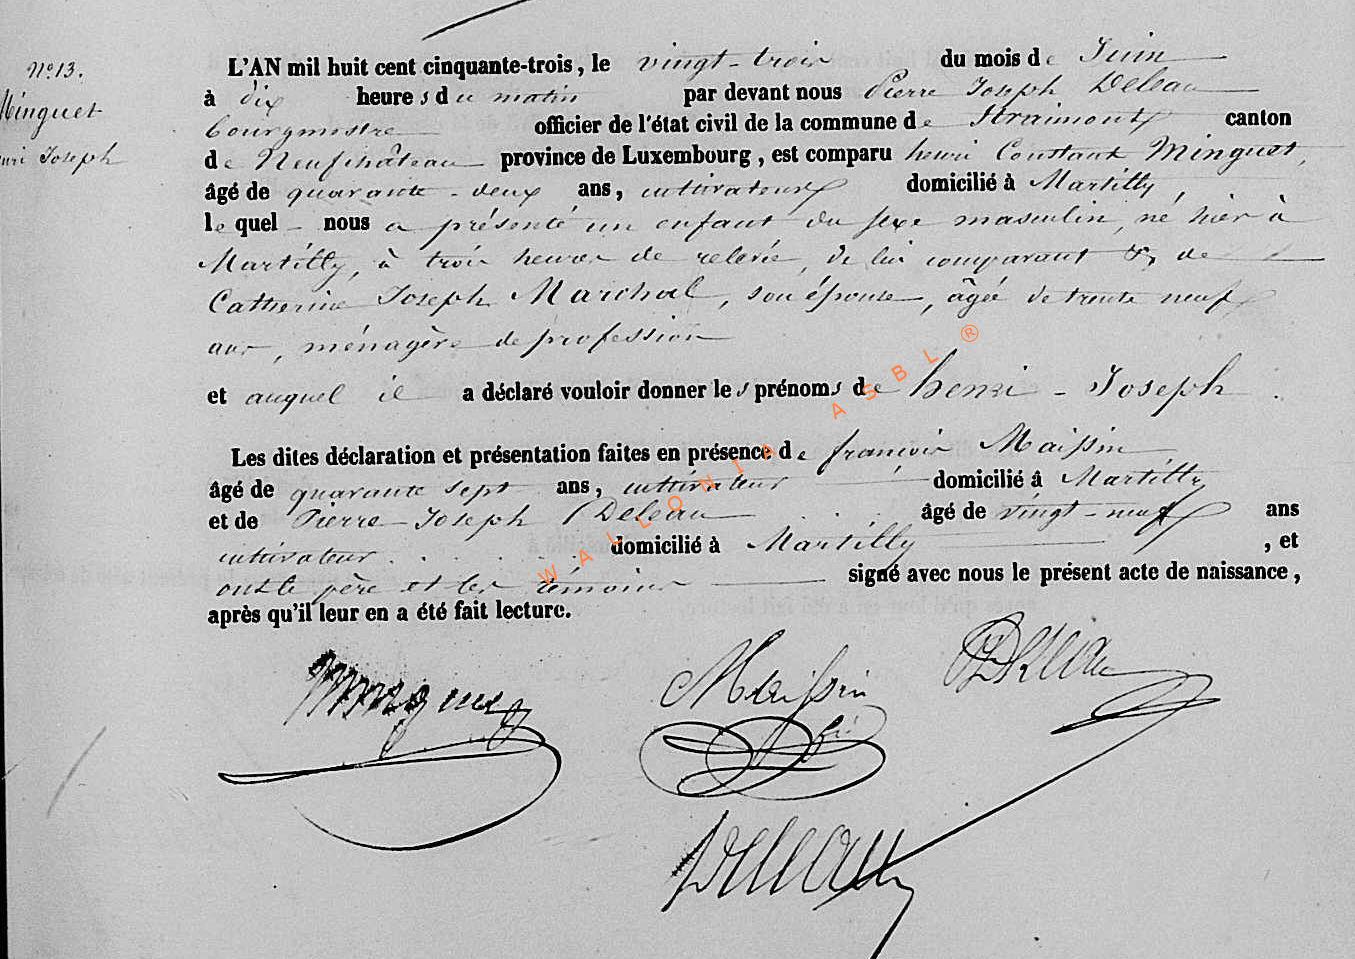 N° 13.
Minguet
Henri Joseph
L'AN mil huit cent cinquante-trois, le vingt-trois du mois de Juin
à dix heures du matin par devant nous Pierre Joseph Deleau
bourgmestre officier de l'état civil de la commune de Straimont canton
de Neufchâteau province de Luxembourg, est comparu henri Constant Minguet,
âgé de quarante-deux ans, cultivateur domicilié à Martilly,
lequel nous a présenté un enfant du sexe masculin, né hier à
Martilly, à trois heures de relevée, de lui comparant & de
Catherine Joseph Marchal, son épouse, âgée de trente neuf
ans, ménagère de profession
et auquel il a déclaré vouloir donner les prénoms de henri - Joseph.
Les dites déclaration et présentation faites en présence de françois Maissin
âgé de quarante sept ans, cultivateur domicilié à Martilly
et de Pierre-Joseph Deleau âgé de vingt-neuf ans
cultivateur domicilié à Martilly, et
ont le père et les témoins signé avec nous le présent acte de naissance,
après qu'il leur en a été fait lecture.
Minguet Maissin PJDeleau
Deleau
WALLONIA ASBL ®